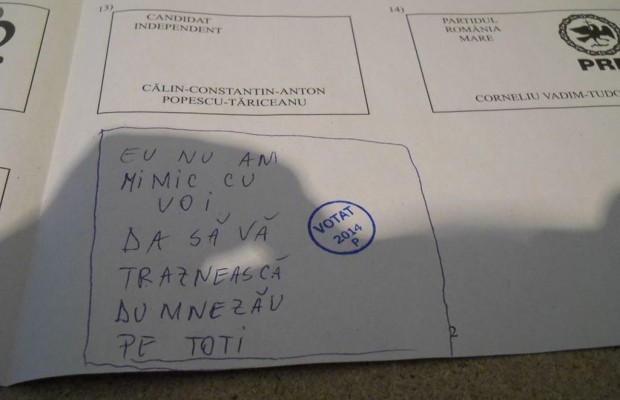 13)
CANDIDAT
INDEPENDENT
CĂLIN-CONSTANTIN-ANTON
POPESCU-TĂRICEANU
14)
PARTIDUL
ROMÂNIA
MARE
PR
CORNELIU VADIM-TUDO
EU NU AM
MIMIC CU
VOI
DA SĂ VĂ
TRAZNEASCĂ
DUMNEZĂU
PE TOTI
VOTAT
2014
P
2